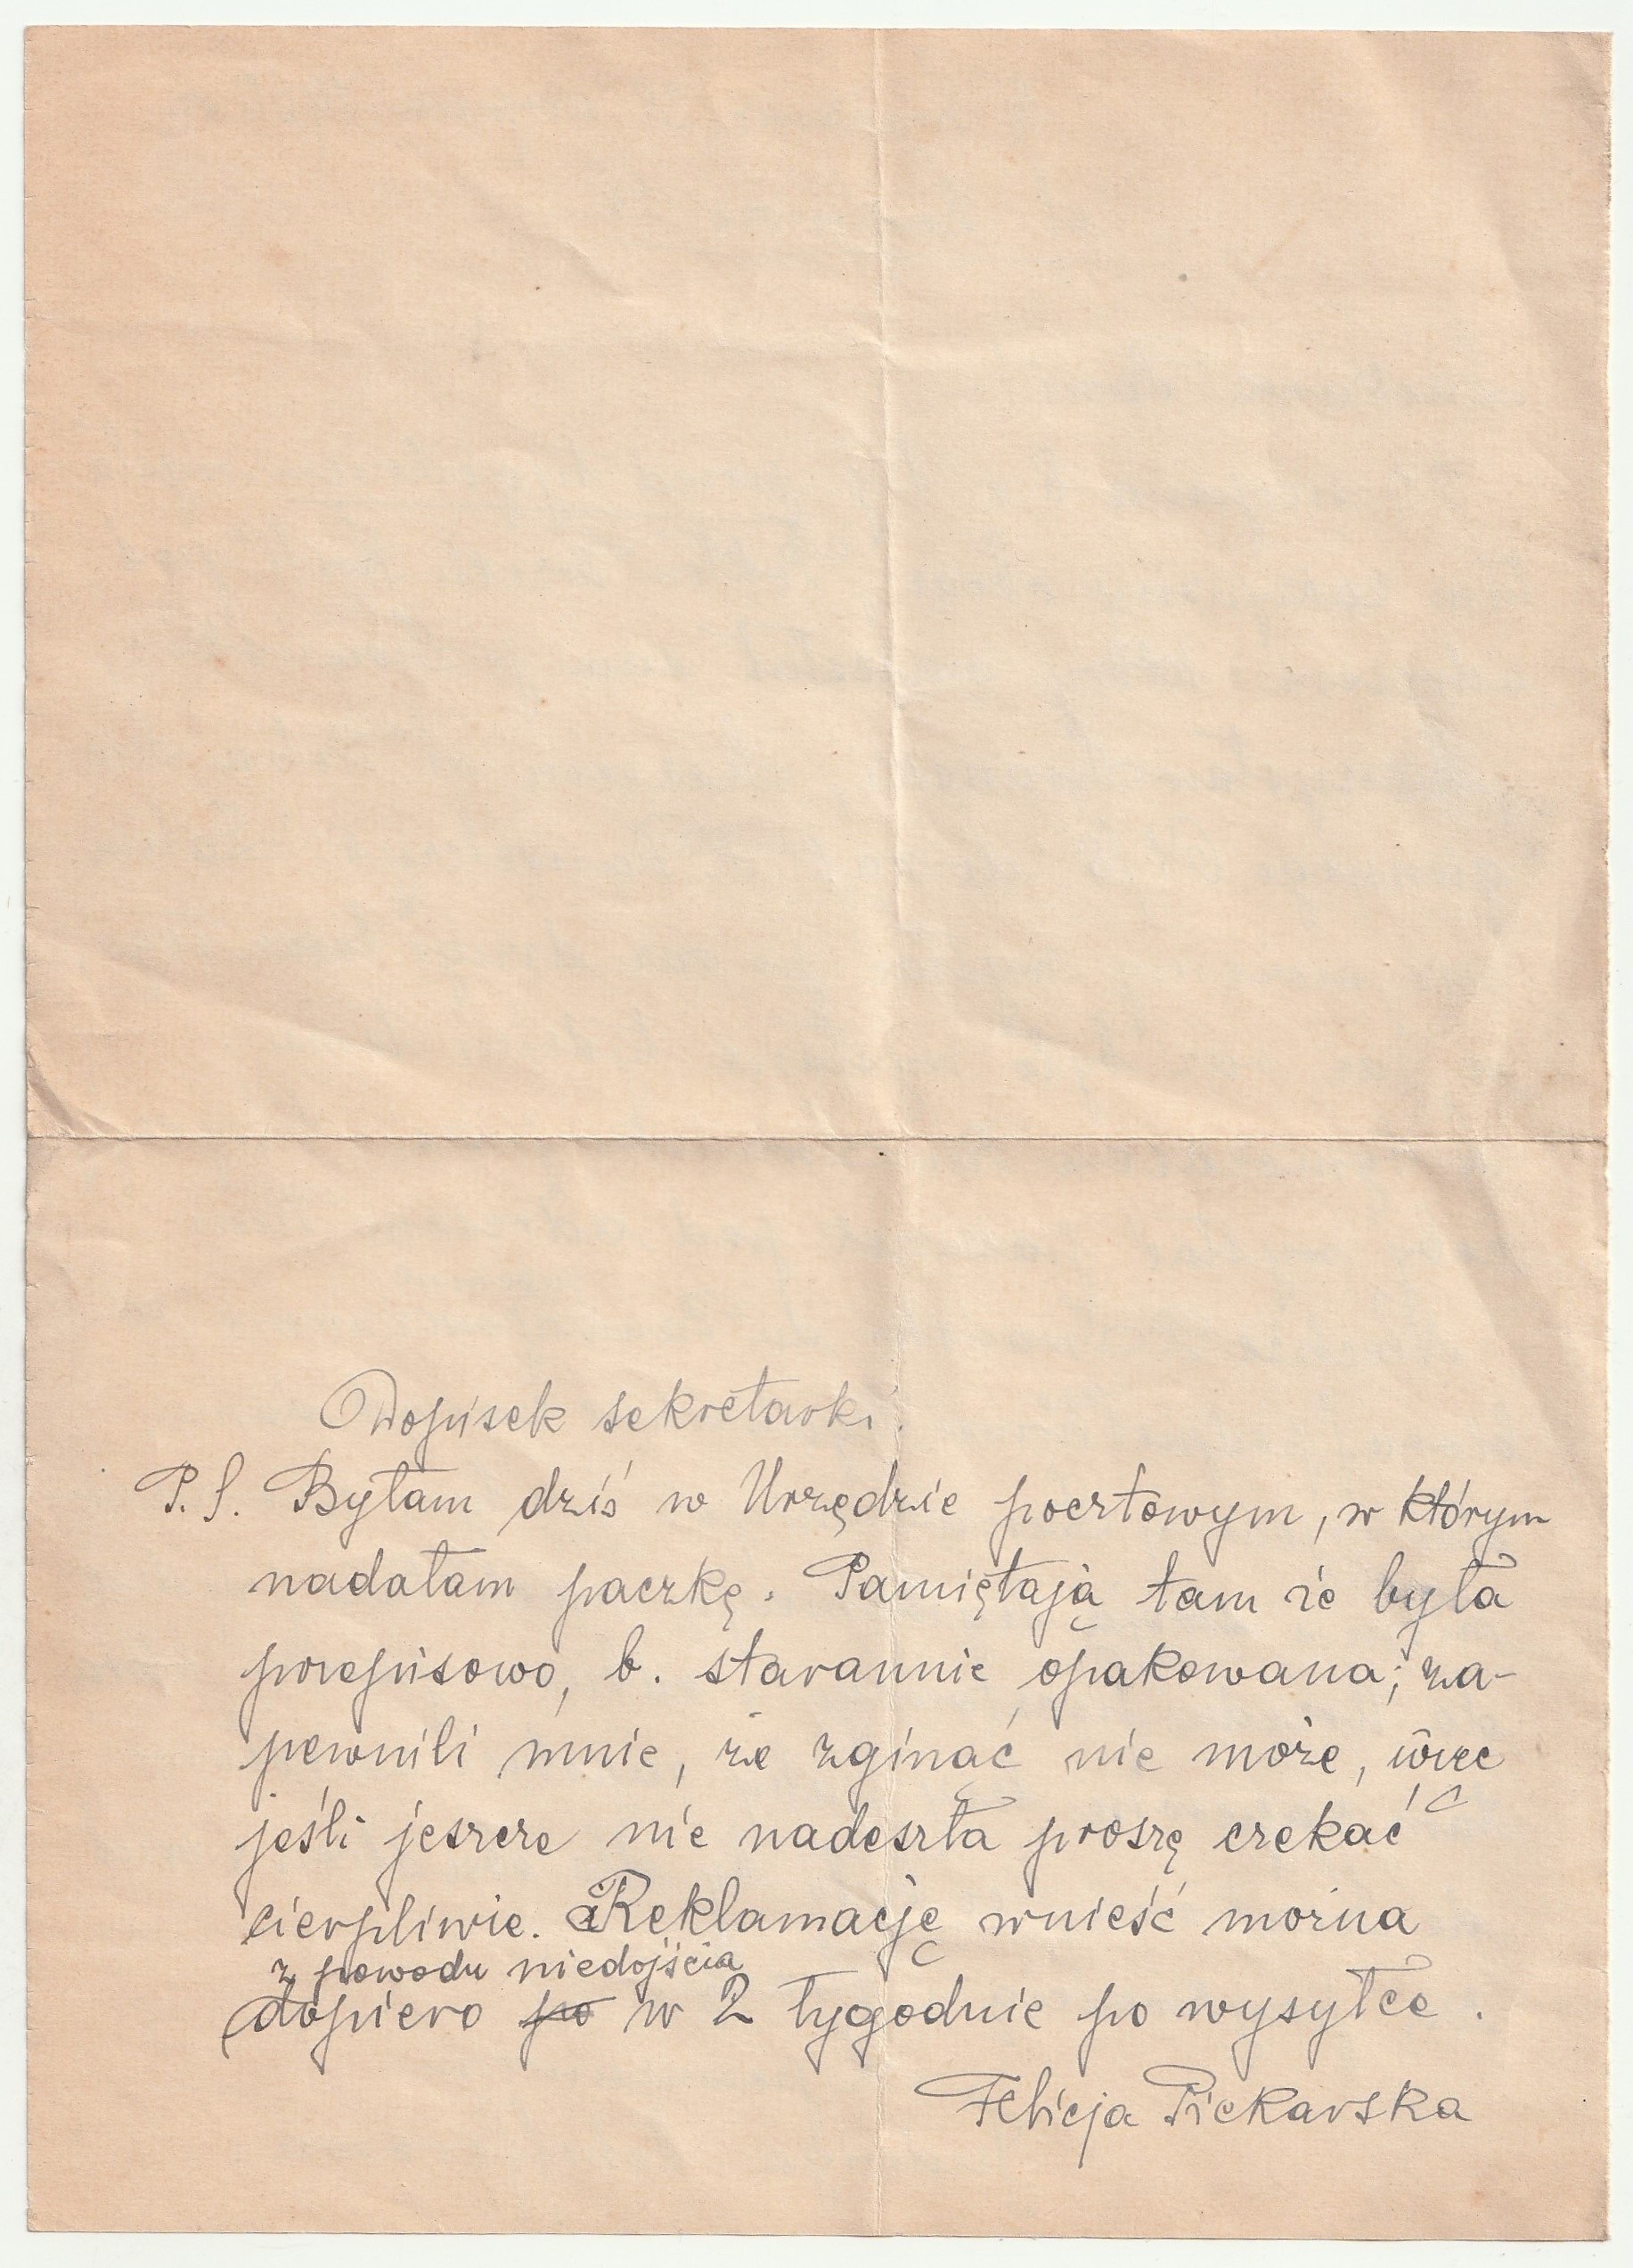 Dopisek sekretarki.
P.S. Byłam dziś w Urzędzie pocztowym, w którym
nadałam paczkę. Pamiętają tam że była
przepisowo, b. starannie opakowana; za-
pewnili mnie, że zginąć nie może, więc
jeśli jeszcze nie nadeszła proszę czekać
cierpliwie. Reklamację wnieść można
z powodu niedojścia
dopiero po w 2 tygodnie po wysyłce.
Felicja Piekarska